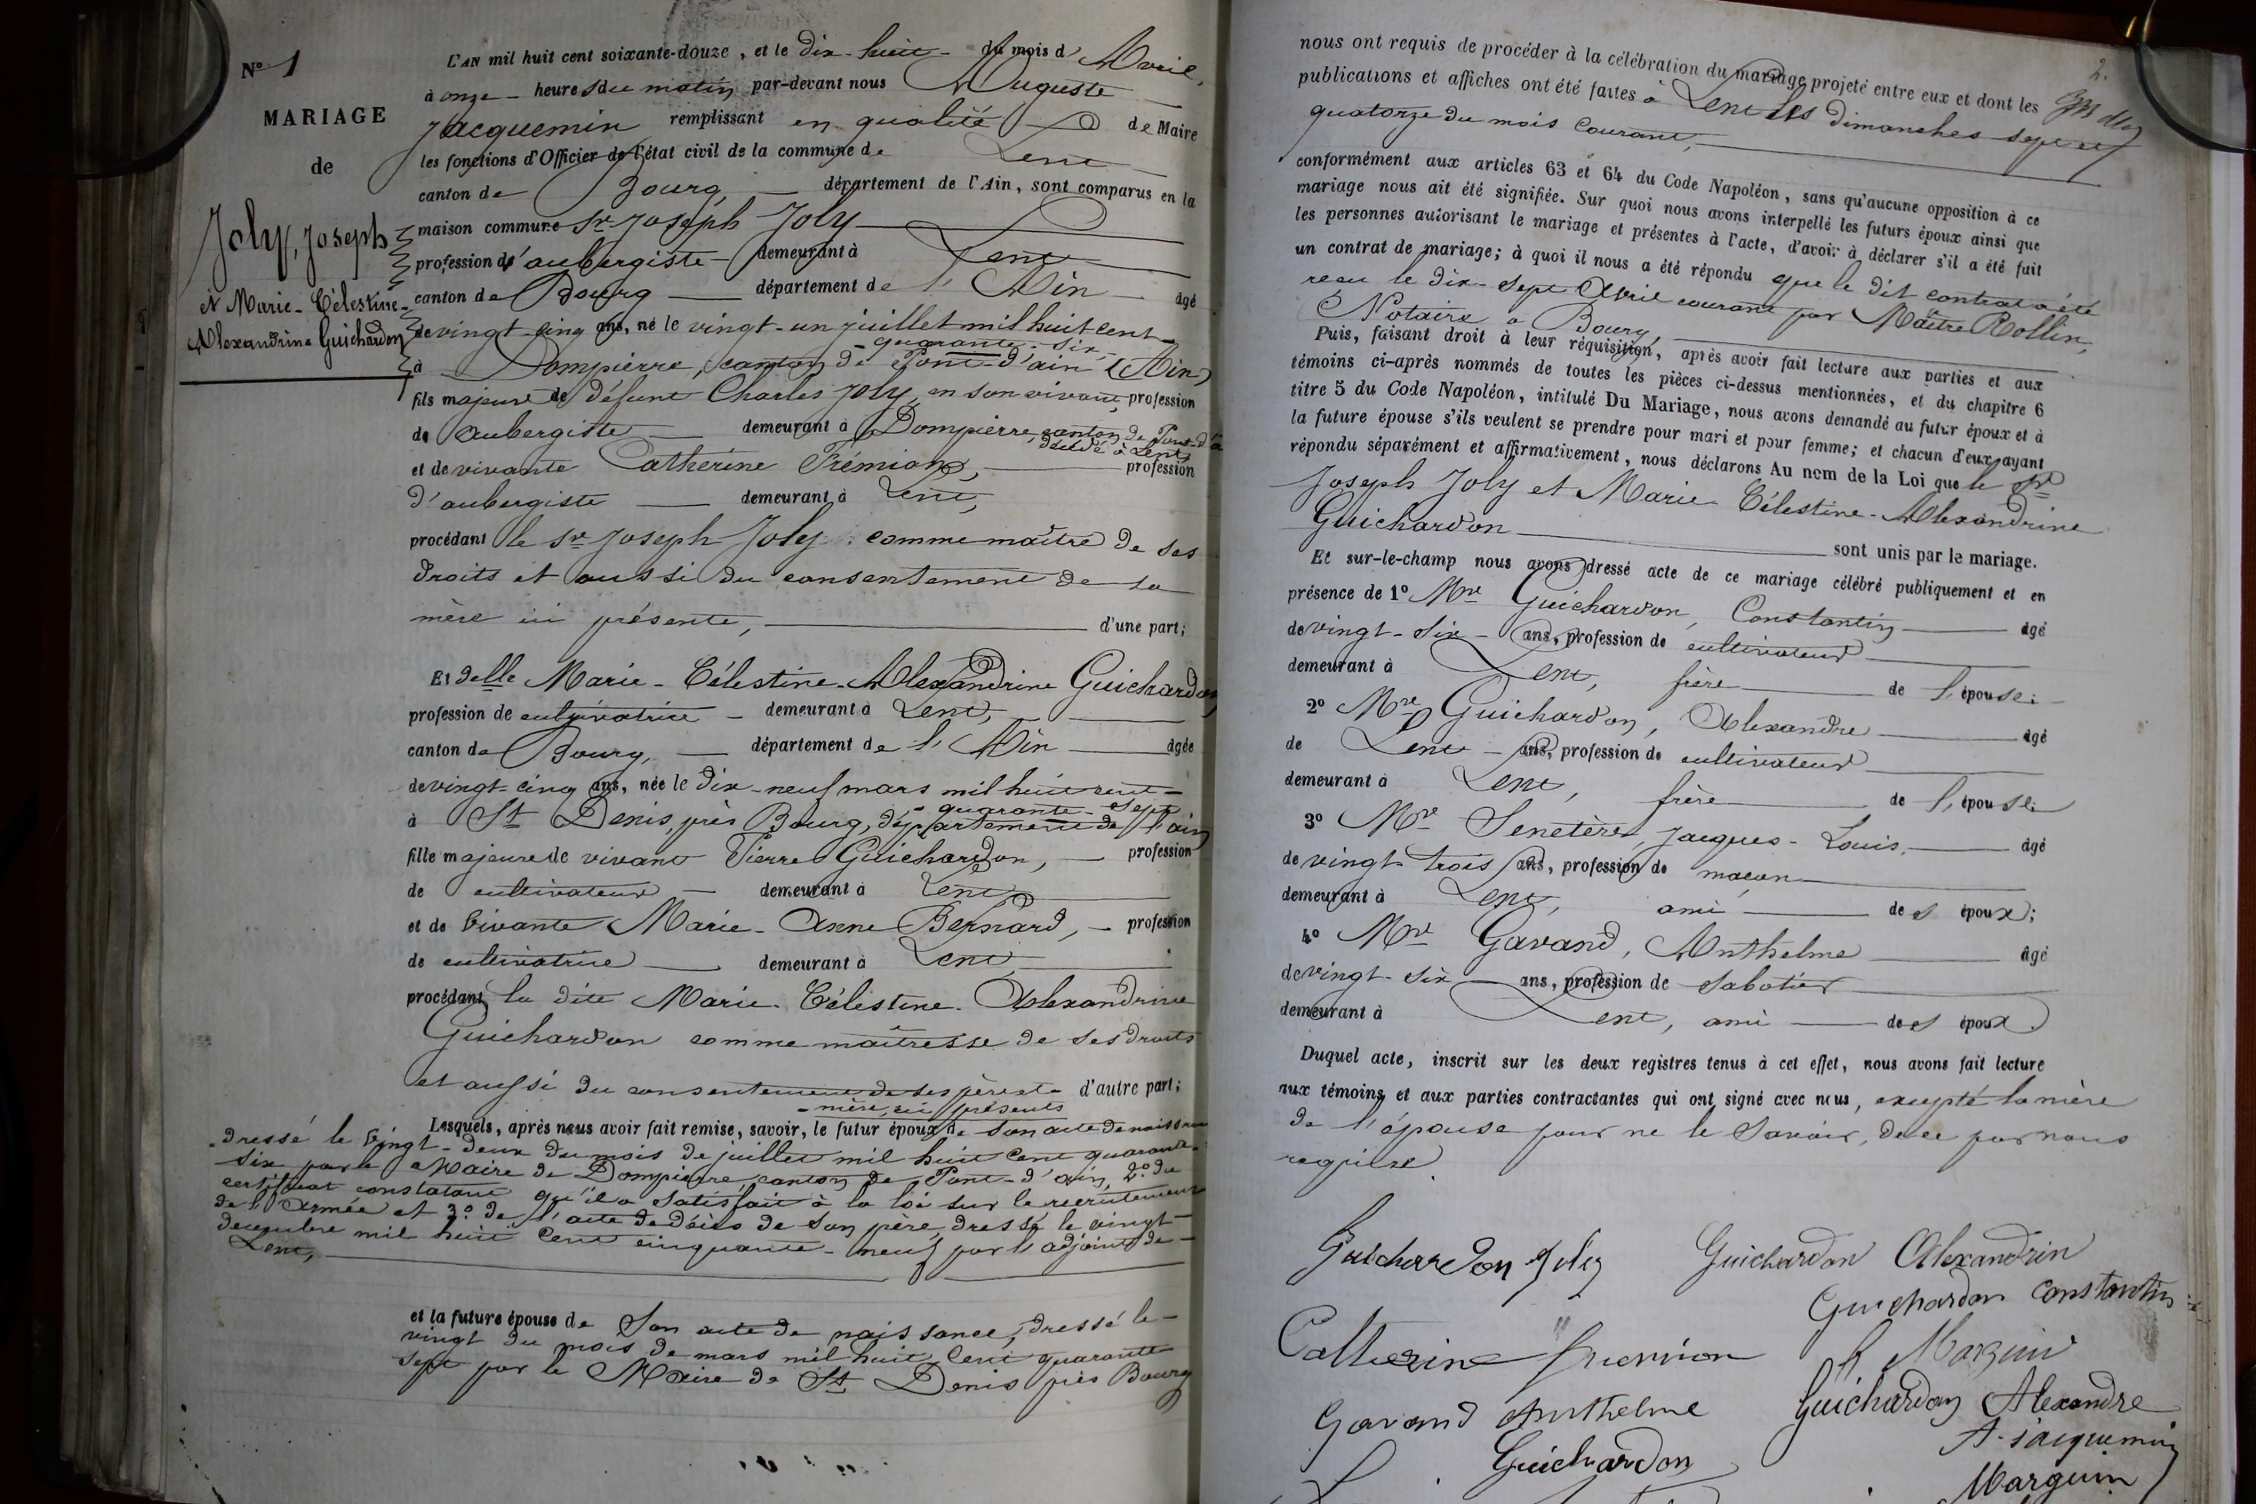 N° 1
MARIAGE
de
Joly, Joseph
et Marie-Célestine-
Alexandrine Guichardon
L'AN mil huit cent soixante-douze, et le dix-huit du mois d'Avril,
à onze heures du matin par-devant nous Auguste
Jacquemin remplissant en qualité de Maire
les fonctions d'Officier de l'état civil de la commune de Lent
canton de Bourg, département de l'Ain, sont comparus en la
maison commune Sr Joseph Joly
profession d'aubergiste demeurant à Lent
canton de Bourg département de l'Ain âgé
de vingt-cinq ans, né le vingt-un juillet mil huit cent
quarante-six,
à Dompierre, canton de Pont-d'ain (Ain)
fils majeur de défunt Charles Joly, en son vivant, profession
de aubergiste demeurant à Dompierre, canton de Pont-d'a
décédé à Lent,
et de vivante Catherine Frémion, profession
d'aubergiste demeurant à Lent,
procédant le Sr Joseph Joly comme maître de ses
droits et aussi du consentement de sa
mère ici présente, d'une part;
Et delle Marie-Célestine-Alexandrine Guichardon,
profession de cultivatrice demeurant à Lent,
canton de Bourg, département de l'Ain âgée
de vingt-cinq ans, née le dix-neuf mars mil huit cent
quarante-sept
à St Denis, près Bourg, département de l'ain
fille majeure de vivant Pierre Guichardon, profession
de cultivateur demeurant à Lent
et de vivante Marie-Anne Bernard, profession
de cultivatrice demeurant à Lent,
procédant la dite Marie-Célestine-Alexandrine
Guichardon comme maîtresse de ses droits
et aussi du consentement de ses père et d'autre part;
mère, ici présents
Lesquels, après nous avoir fait remise, savoir, le futur époux de son acte de naissance
dressé le vingt-deux du mois de juillet mil huit cent quarante-
six par le Maire de Dompierre canton de Pont-d'ain, 2° du
certificat constatant qu'il a satisfait à la loi sur le recrutement
de l'armée et 3° de l'acte de décès de son père, dressé le vingt
decembre mil huit cent cinquante-neuf par l'adjoint de
Lent,
et la future épouse de son acte de naissance, dressé le
vingt du mois de mars mil huit cent quarante
sept par le Maire de St Denis près Bourg
2.
nous ont requis de procéder à la célébration du mariage projeté entre eux et dont les
publications et affiches ont été faites à Lent les dimanches sept et
quatorze du mois courant,
conformément aux articles 63 et 64 du Code Napoléon, sans qu'aucune opposition à ce
mariage nous ait été signifiée. Sur quoi nous avons interpellé les futurs époux ainsi que
les personnes autorisant le mariage et présentes à l'acte, d'avoir à déclarer s'il a été fait
un contrat de mariage; à quoi il nous a été répondu que le dit contrat a été
recu le dix-sept Avril courant par Maître Rollin,
Notaire à Bourg,
Puis, faisant droit à leur réquisition, après avoir fait lecture aux parties et aux
témoins ci-après nommés de toutes les pièces ci-dessus mentionnées, et du chapitre 6
titre 5 du Code Napoléon, intitulé Du Mariage, nous avons demandé au futur époux et à
la future épouse s'ils veulent se prendre pour mari et pour femme; et chacun d'eux ayant
répondu séparément et affirmativement, nous déclarons Au nom de la Loi que le Sr
Joseph Joly et Marie Célestine-Alexandrine
Guichardon sont unis par le mariage.
Et sur-le-champ nous avons dressé acte de ce mariage célébré publiquement et en
présence de 1° Mr Guichardon, Constantin âgé
de vingt-six ans, profession de cultivateur
demeurant à Lent, frère de l'épouse;
2° Mr Guichardon, Alexandre âgé
de Lent ans, profession de cultivateur
demeurant à Lent, frère de l'épouse;
3° Mr Senetère, Jacques-Louis, âgé
de vingt-trois ans, profession de maçon
demeurant à Lent, ami des époux;
4° Mr Gavand, Anthelme âgé
de vingt-six ans, profession de sabotier
demeurant à Lent, ami des époux
Duquel acte, inscrit sur les deux registres tenus à cet effet, nous avons fait lecture
aux témoins et aux parties contractantes qui ont signé avec nous, excepté la mère
de l'épouse pour ne le savoir, de ce par nous
requise.
Guicharedon Joly Guichardon Alexandrin
Guichardon Constantin
Catherine Fremion Marguin
Gavand Anthelme Guichardon Alexandre
Guichardon A. Jacquemin
Marguin